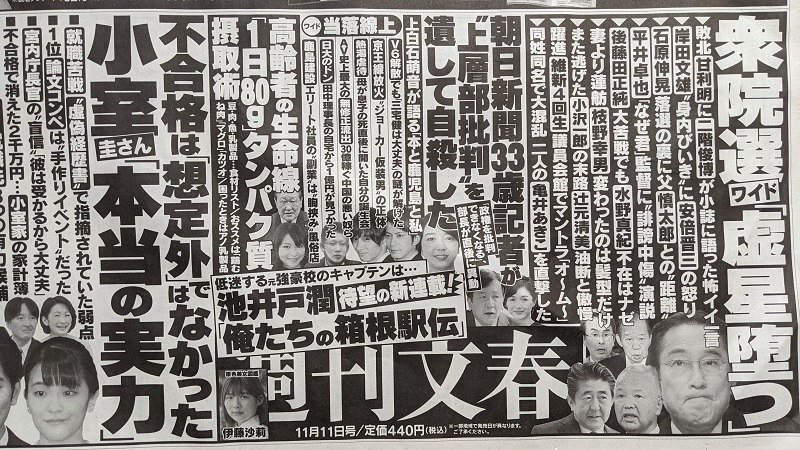 衆院選
ワイド
「虚星堕つ」
敗北甘利明に二階俊博が小誌に語った怖イイ一言
岸田文雄“身内びいき”に安倍晋三の怒り
石原伸晃 落選の裏に父慎太郎との“距離”
平井卓也「なぜ君」監督に“誹謗中傷”演説
後藤田正純 大苦戦でも水野真紀不在はナゼ
妻より蓮舫 枝野幸男変わったのは髪型だけ
また逃げた小沢一郎の末路 辻元清美油断と傲慢
躍進維新4回生 議員会館でマントラ「オ〜ム〜」
同姓同名で大混乱 二人の亀井あきこを直撃した
朝日新聞33歳記者が
“上層部批判”を
遺して自殺した
「政権を批判
できなくなる」
部署が直後に異動
ワイド
当落線上
上白石萌音が語る「本と鹿児島と私」
V6解散でも三宅健は大丈夫の謎が解けた
京王線放火“ジョーカー”仮装男の正体
AV史上最大の無修正流出 30億稼ぐ中国の黒い奴ら
日大のドン 田中理事長の自宅から1億円が見つかった
高齢者の生命線
「1日80g」タンパク質
摂取術
不合格は「想定外」ではなかった
小室圭さん「本当の実力」
就職苦戦“虚偽経歴書”で指摘されていた弱点
1位論文コンペは“手作りイベント”だった
宮内庁長官の“盲信”「彼は受かるから大丈夫」
不合格で消えた2千万円…小室家の家計簿
低迷する元強豪校のキャプテンは…
池井戸潤
待望の新連載!
「俺たちの箱根駅伝」
原色美女図鑑
伊藤沙莉
週刊文春
11月11日号/定価440円(税込)
※一部地域で発売日が異なります。
ご了承ください。